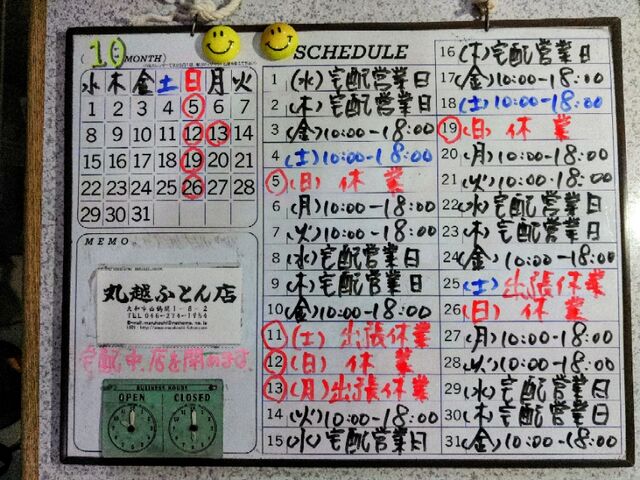 10 MONTH
水 木 金 土 日 月 火
1 2 3 4 5 6 7
8 9 10 11 12 13 14
15 16 17 18 19 20 21
22 23 24 25 26 27 28
29 30 31
MEMO
丸越ふとん店
TEL 046-274-1954
宅配中、店を閉めます
BUSINESS HOURS
OPEN CLOSED
SCHEDULE
1 (水) 宅配営業日
2 (木) 宅配営業日
3 (金) 10:00-18:00
4 (土) 10:00-18:00
5 (日) 休業
6 (月) 10:00-18:00
7 (火) 10:00-18:00
8 (水) 宅配営業日
9 (木) 宅配営業日
10 (金) 10:00-18:00
11 (土) 出張休業
12 (日) 休業
13 (月) 出張休業
14 (火) 10:00-18:00
15 (水) 宅配営業日
16 (木) 宅配営業日
17 (金) 10:00-18:00
18 (土) 10:00-18:00
19 (日) 休業
20 (月) 10:00-18:00
21 (火) 10:00-18:00
22 (水) 宅配営業日
23 (木) 宅配営業日
24 (金) 10:00-18:00
25 (土) 出張休業
26 (日) 休業
27 (月) 10:00-18:00
28 (火) 10:00-18:00
29 (水) 宅配営業日
30 (木) 宅配営業日
31 (金) 10:00-18:00